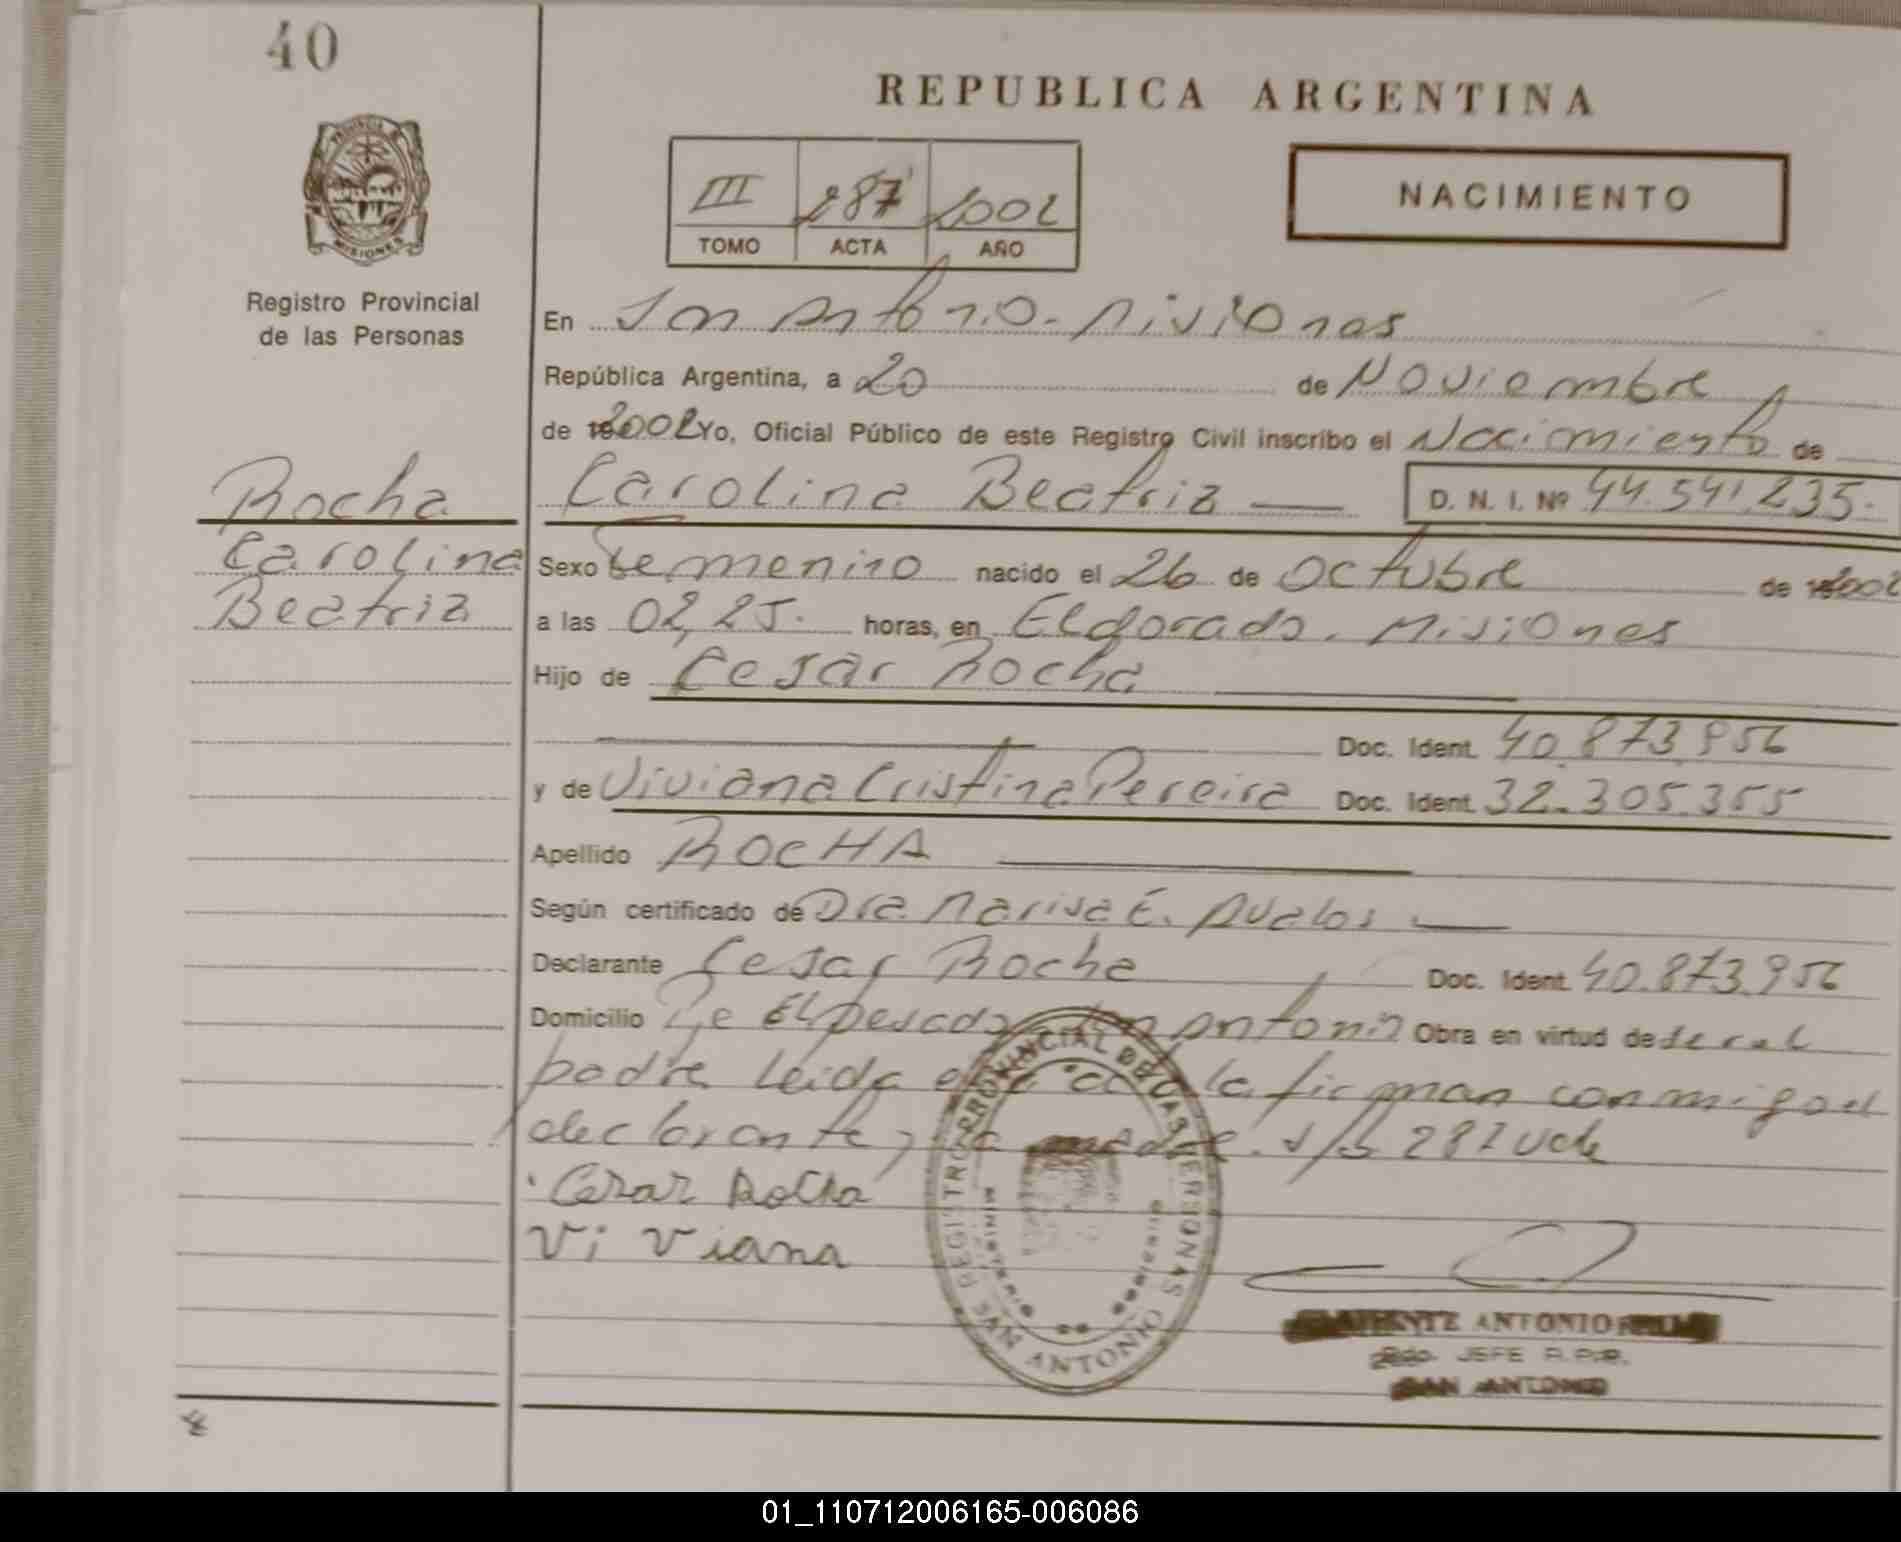 40
REPUBLICA ARGENTINA
PROVINCIA DE
MISIONES
III 287 2002
TOMO ACTA AÑO
NACIMIENTO
Registro Provincial
de las Personas
En San Antonio - Misiones
República Argentina, a 20 de Noviembre
de 2002 Yo, Oficial Público de este Registro Civil inscribo el Nacimiento de
Rocha
Carolina Beatriz D. N. I. Nº 44.541.235.
Carolina
Sexo femenino nacido el 26 de Octubre de 2002
Beatriz
a las 02,25. horas, en Eldorado. Misiones
Hijo de Cesar Rocha
Doc. Ident. 40.873.956
y de Viviana Cristina Pereira Doc. Ident. 32.305.355
Apellido ROCHA
Según certificado de Dra Marisa E. Avalos
Declarante Cesar Rocha Doc. Ident. 40.873.956
Domicilio Pje El pesado San Antonio Obra en virtud de ser el
padre leida el acta la firman conmigo el
declarante y la madre. s/b 287 vale
Cesar Rocha
Vi viana
REGISTRO PROVINCIAL DE LAS PERSONAS
MINISTERIO
SAN ANTONIO
ANTONIO
JEFE R.P.P.
SAN ANTONIO
01_110712006165-006086